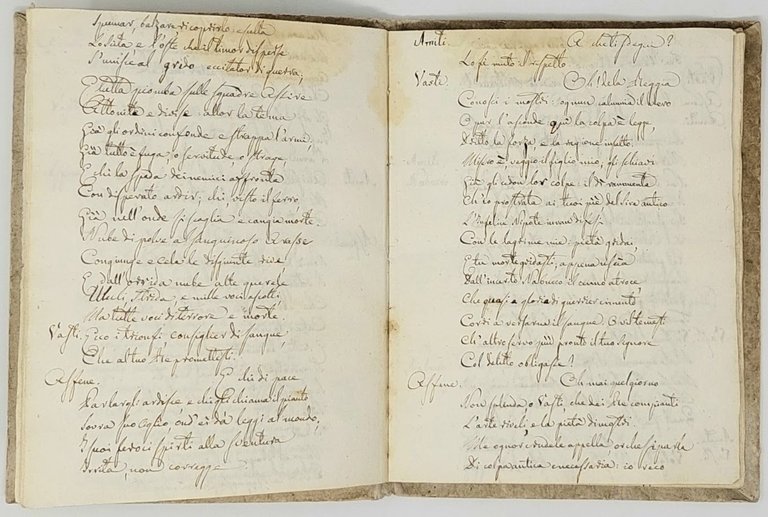 Spumar, balzare, ricoprirlo: esulta
Lo Scita, e l'oste che istimò dispersa
S'unisce al grido eccitator di guerra;
E tutta piomba sulle squadre assire
Attonite e divise: allor la tema
Già gli ordini confonde e strappa l'armi,
Già tutto è fuga, o servitude o strage
E chi la spada dei nemici affronta
Con disperato ardir; chi, visto il ferro,
Giù nell'onde si scaglia e cangia morte.
Nube di polve al sanguinoso Arasse
Congiunge e cela le disgiunte rive
E dall'orrida nube alte querele
Ululi, strida, e mille voci ascolti,
Ma tutte voci di terrore e morte.
Vasti. Ecco i trionfi consiglier di sangue,
Che al tuo Re promettesti.
Assene. E chi di pace
Parlargli ardisce e chi gli chiama il pianto
Sovra suo ciglio, ond'ei dà leggi al mondo,
I suoi feroci spirti alla sventura
Irrita, non corregge
Amiti. A che ti segue?
Lo fè muto il rispetto
Vasti Oh! della Reggia
Conosci i mostri: ognun calunnia il vero
O pur l'asconde quì la colpa è legge,
Dritto la forza e la ragione insulto.
Misero è veggio il figlio mio; gli schiavi
Già gli odon lor colpe: il dì rammenta
Ch'io prostrata ai tuoi piè del Sire antico
L'infelice Nipote invan difesi.
Con le lagrime mie: pietà gridai,
E tu morte gridasti, appena uscia
Dall'incerto Nabucco il cenno atroce,
Che quasi a gloria di guerrier cimento
Corri a versarne il sangue: O vil temesti
Ch'altro servo più pronto il tuo signore
Col delitto obligasse?
Assene. Oh mai quel giorno
Non splenda o Vasti, che dei Re compianti
L'arte riveli e la pietà dimostri.
Me ognor crudele appella, or che si parla
Di colpa antica e necessaria: io reco